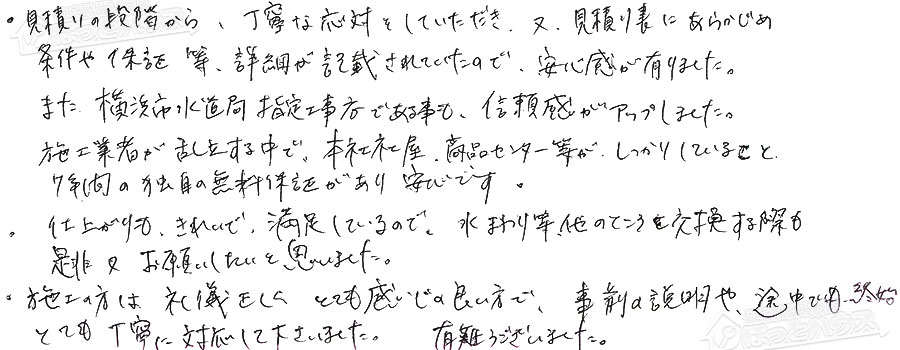 ・見積りの段階から、丁寧な応対をしていただき、又、見積り表にあらかじめ
条件や保証等、詳細が記載されていたので、安心感が有りました。
また横浜市水道局指定工事店である事も、信頼感がアップしました。
施工業者が乱立する中で、本社社屋、商品センター等が、しっかりしていること、
7年間の独自の無料保証があり安心です。
・仕上がりも、きれいで、満足しているので、水まわり等他のところを交換する際も
是非又お願いしたいと思いました。
・施工の方は礼儀正しくとても感じの良い方で、事前の説明や、途中でも終始
とても丁寧に対応して下さいました。有難うございました。